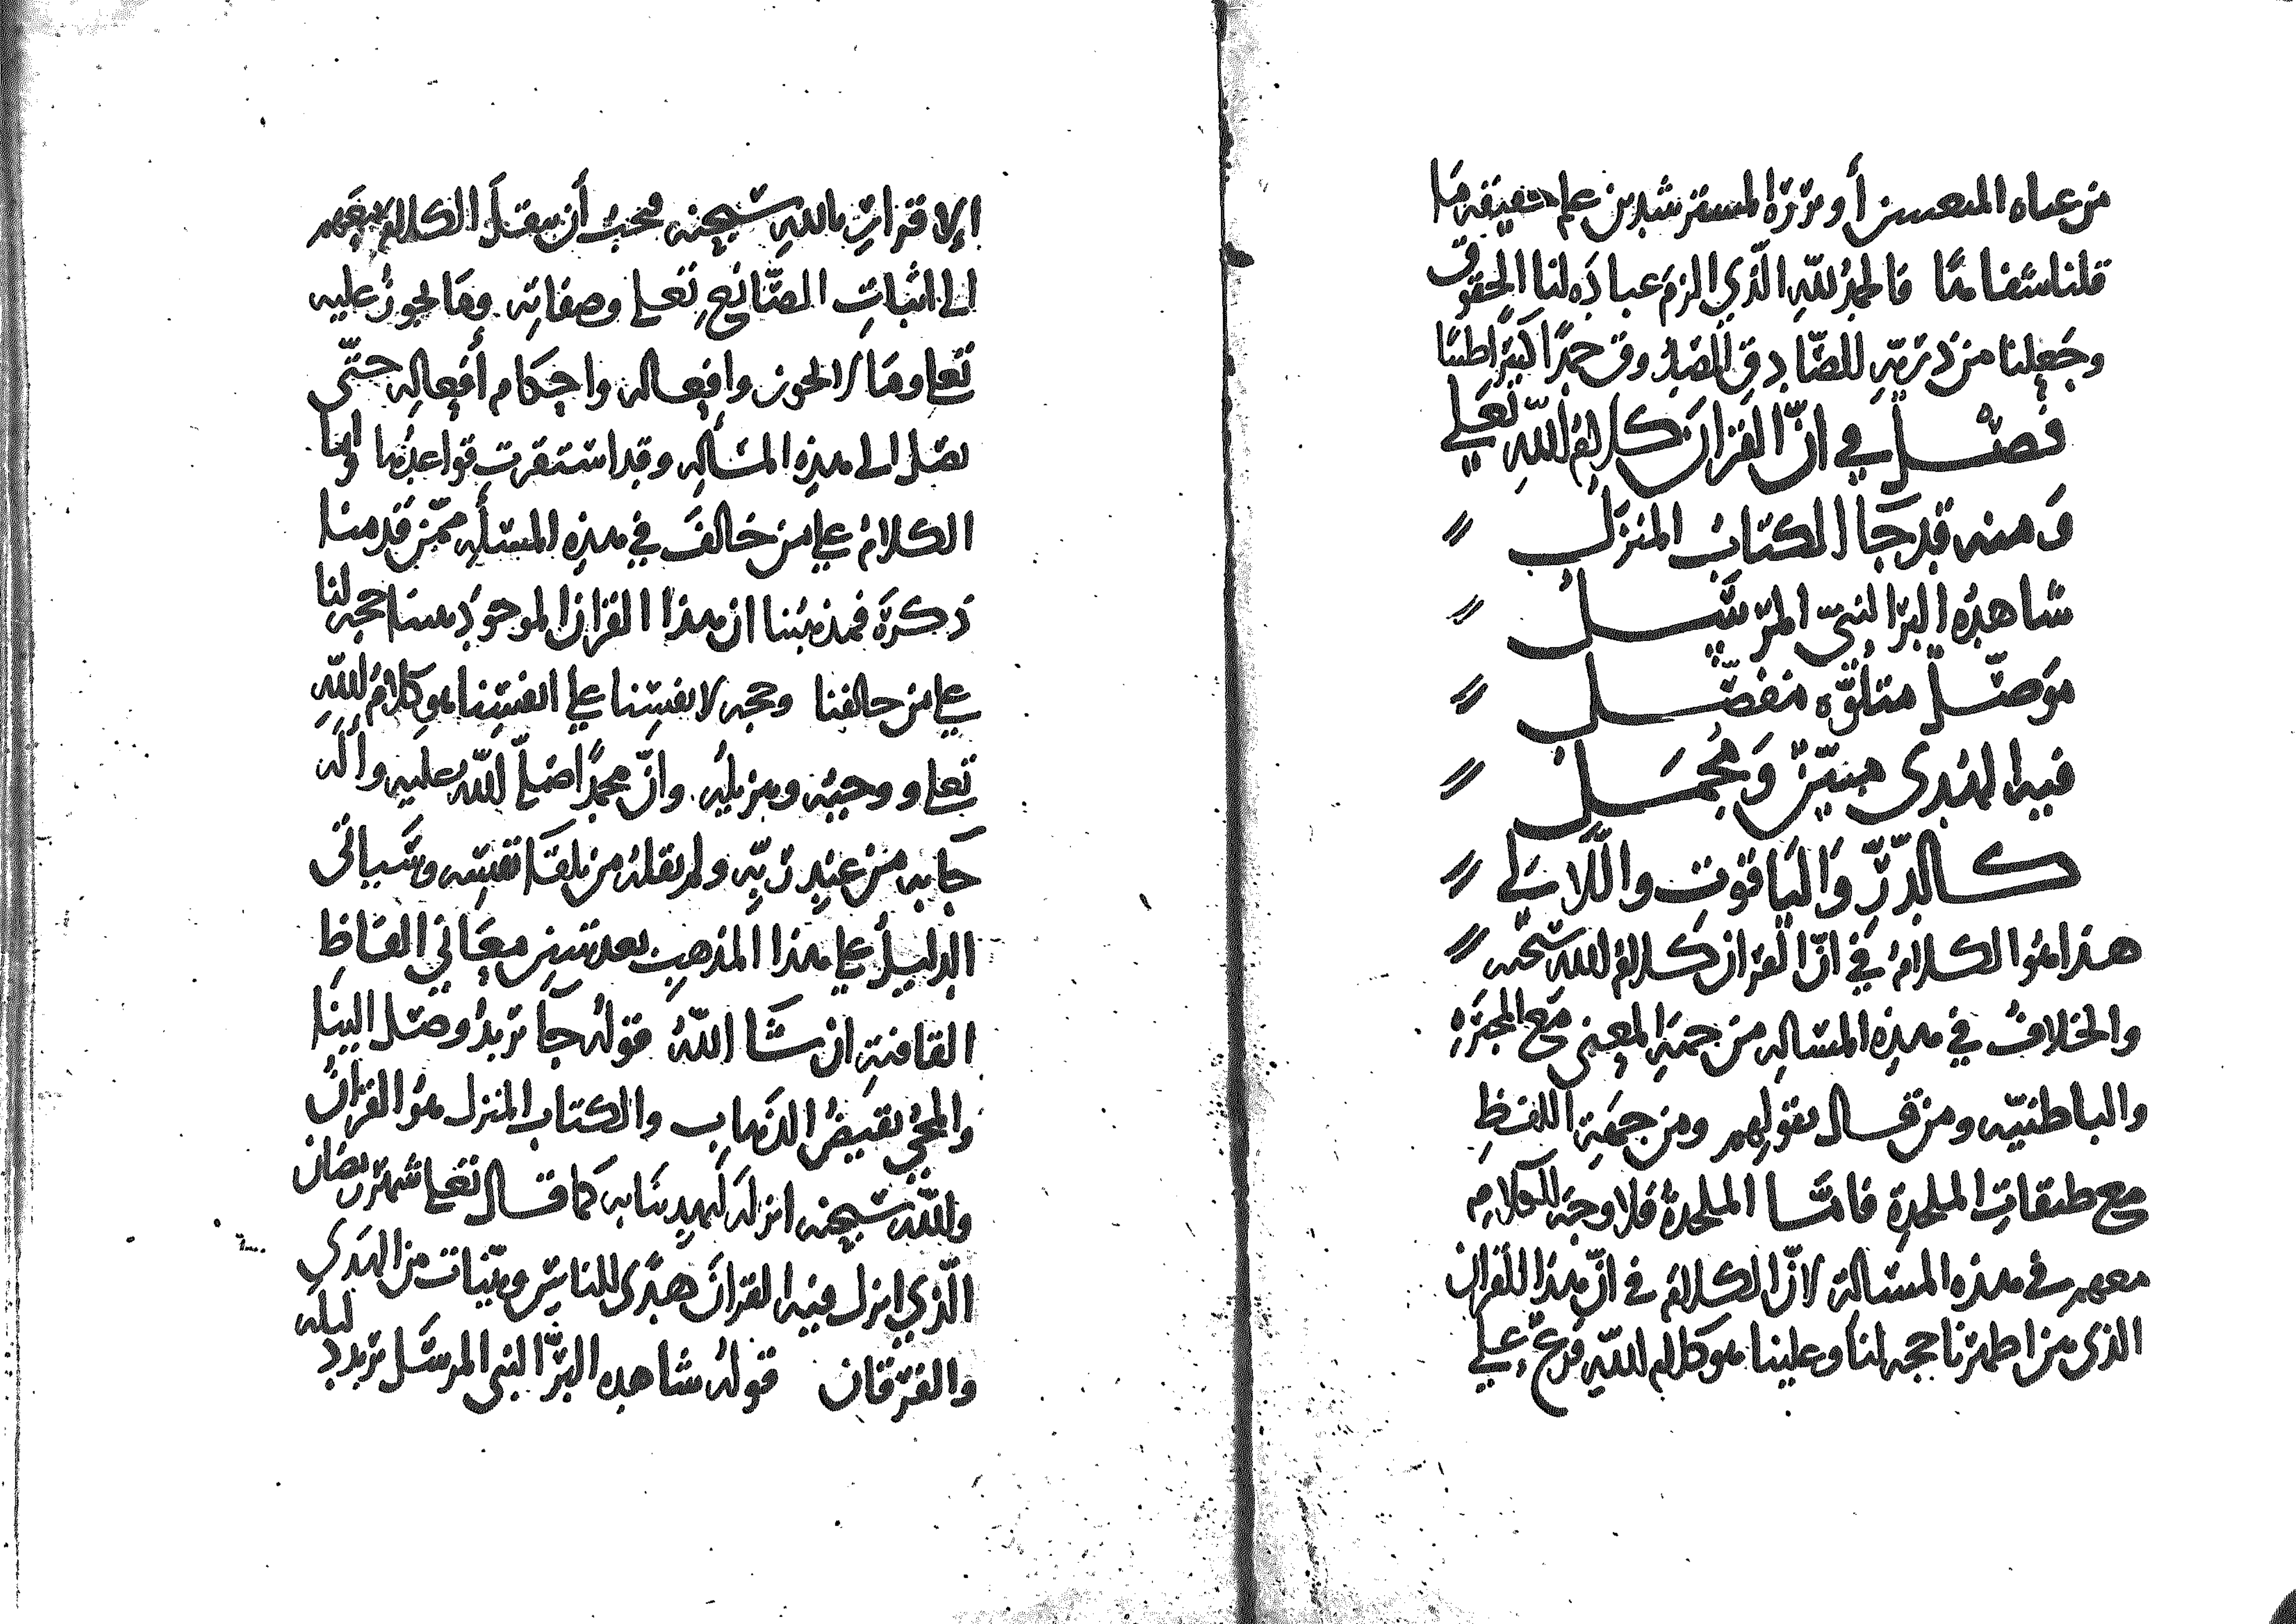 من عباه المتعسين أو نزره المسترشدين علم حقيقة ما
قلنا شفاها فالحمد لله الذي الزم عباده لنا الحقوق
وجعلنا من ذرية الصادق المصدوق حمدا كثيرا طيبا
فصل في ان القران كلام الله تعلى
ومنه قد جا الكتاب المنزل
شاهده البر النبي المرسل
موصل متلوه مفصل
فيه الهدى مبين ومجمل
كالدر والياقوت واللالي
هذا هو الكلام في ان القران كلام الله سبحنه
والخلاف في هذه المساله من جهة المعنى مع المجبره
والباطنيه ومن قال بقولهم ومن جهة اللفظ
مع طبقات الملحدة فاما الملحدة فلا وجه للكلام
معهم في هذه المسالة لان الكلام في ان هذا القران
الذي من اظهرنا حجه لنا وعلينا هو كلام الله فرع على
الاقرار بالله سبحنه فيجب أن ينقل الكلام معهم
الى اثبات الصانع تعلى وصفاته وما يجوز عليه
تعلى وما لا يجوز وافعاله واحكام أفعاله حتى
نصل الى هذه المساله وقد استقرت قواعدها واما
الكلام على من خالف في هذه المسأله ممن قدمنا
ذكره فمذهبنا ان هذا القران الموجود بيننا حجه لنا
على من خالفنا وحجه لانفسنا على انفسنا هو كلام الله
تعلى ووحيه وتنزيله وان محمدا صلى الله عليه وأله
جا به من عند ربه ولم يقله من تلقا نفسه وسياتى
الدليل على هذا المذهب بعد تبيين معاني الفاظ
القافية ان شا الله قوله جا يريد وصل الينا
والمجي نقيض الذهاب والكتاب المنزل هو القران
والله سبحنه انزله ليهدينا به كما قال تعلى شهر رمضان
الذي انزل فيه القران هدى للناس وبينات من الهدى
والفرقان قوله شاهده البر النبي المرسل يريد دليله